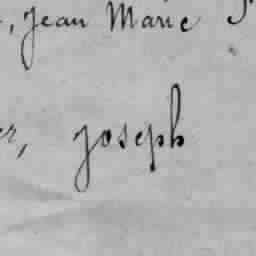 , Jean Marie
er, joseph